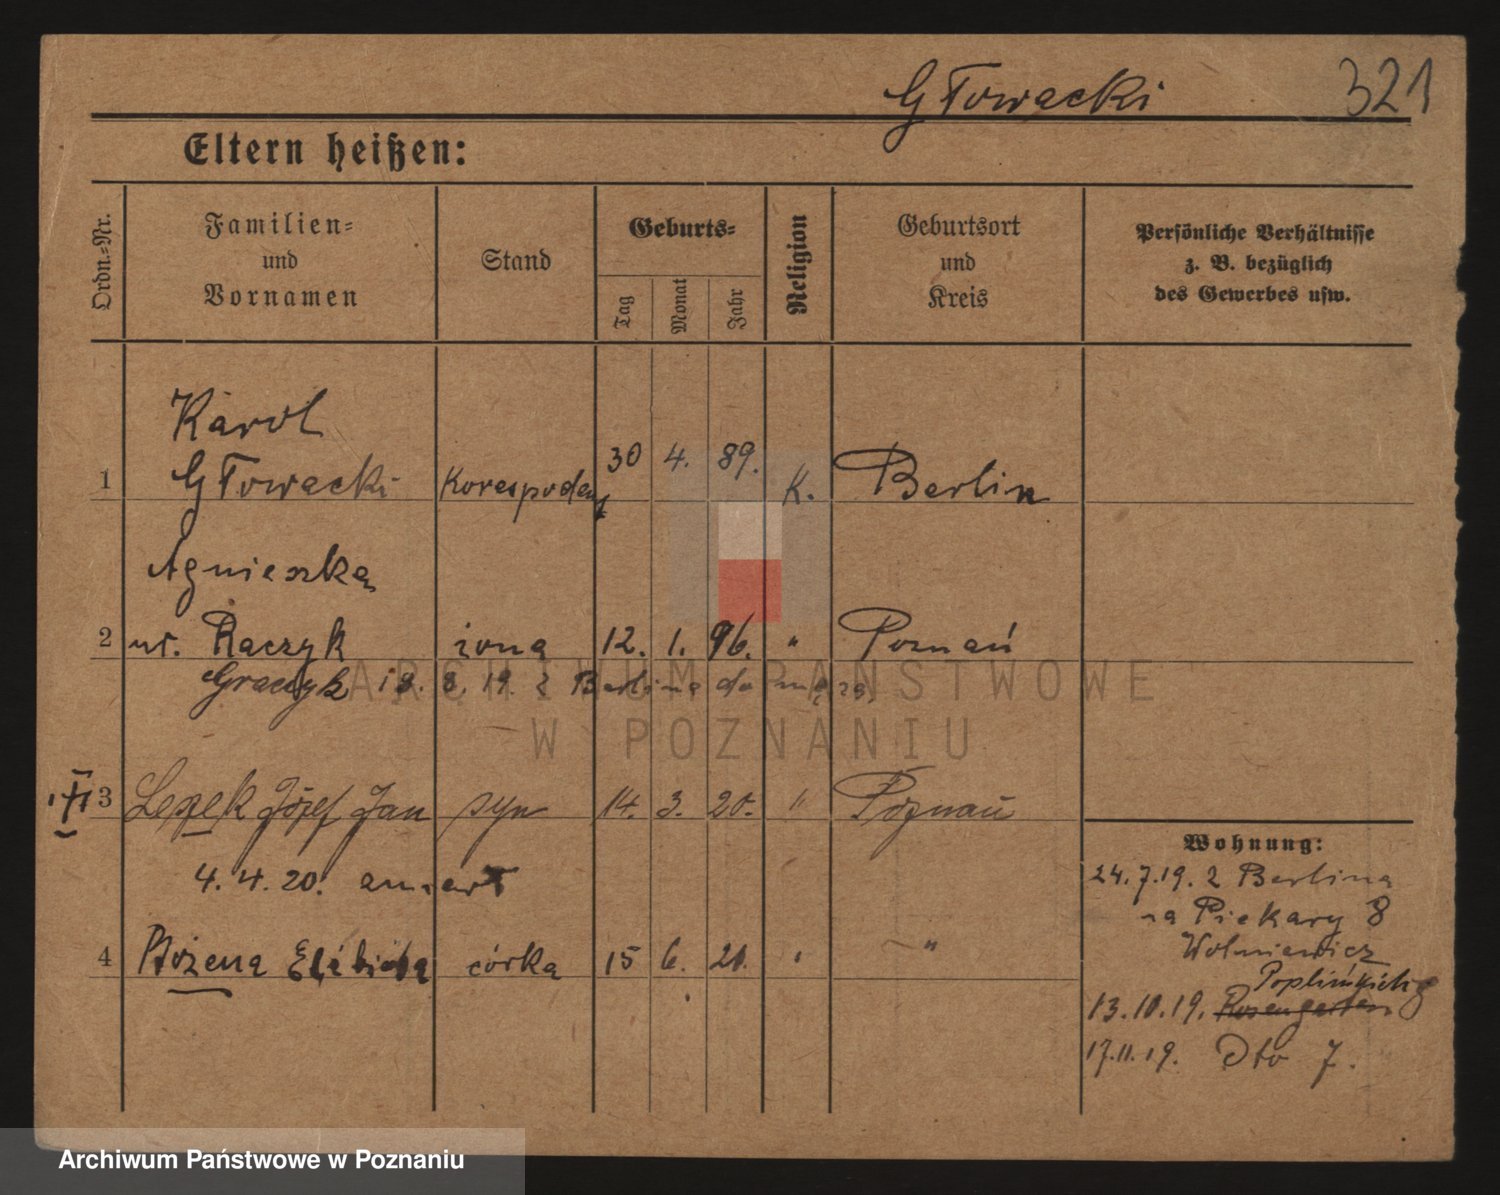 Głowacki 321
Eltern heißen:
Ordn.-Nr.
Familien-
und
Vornamen
Stand
Geburts-
Tag
Monat
Jahr
Religion
Geburtsort
und
Kreis
Persönliche Verhältnisse
z. B. bezüglich
des Gewerbes usw.
Karol
1 Głowacki Korespodent 30 4. 89. K. Berlin
Agnieszka
2 ur. Raczyk żona 12. 1. 96. " Poznań
Graczyk 18. 8. 19. z Berlina do męża
ARCHIWUM PAŃSTWOWE
W POZNANIU
3 Leszek Józef Jan syn 14. 3. 20. " Poznań
4. 4. 20.
4 Bożena Elżbieta córka 15 6. 21. " "
Wohnung:
24.7.19. z Berlina
na Piekary 8
Wolniewicz
Poplińskich 8
13.10.19. Rosengarten
17.11.19. Dto 7.
Archiwum Państwowe w Poznaniu